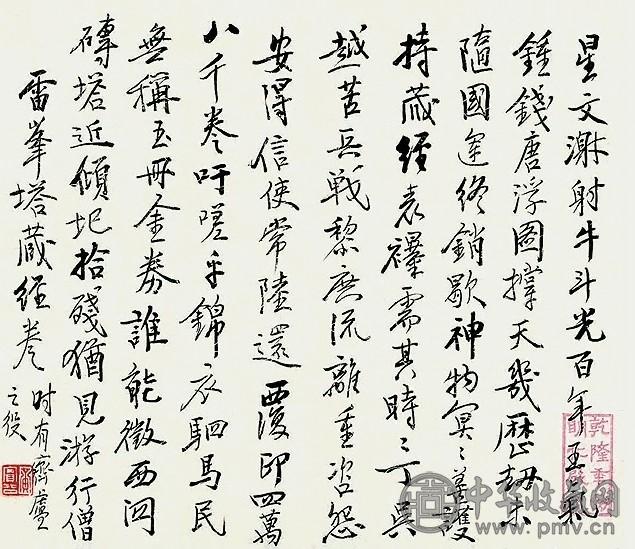 星文激射牛斗光百年王氣
鍾錢唐浮圖撐天幾歷劫未
隨國運終銷歇神物冥〻善護
持藏經表襮需其時〻丁吳
越苦兵戰黎庶流離重咨怨
安得信使常陸還覆印四萬
八千卷吁嗟乎錦衣駟馬民
無稱玉冊金券誰能徵西關
磚塔近傾圮拾殘猶見游行僧
雷峯塔藏經卷 時有齊盧
之役
乾隆
中华收藏网
www.pmv.cn